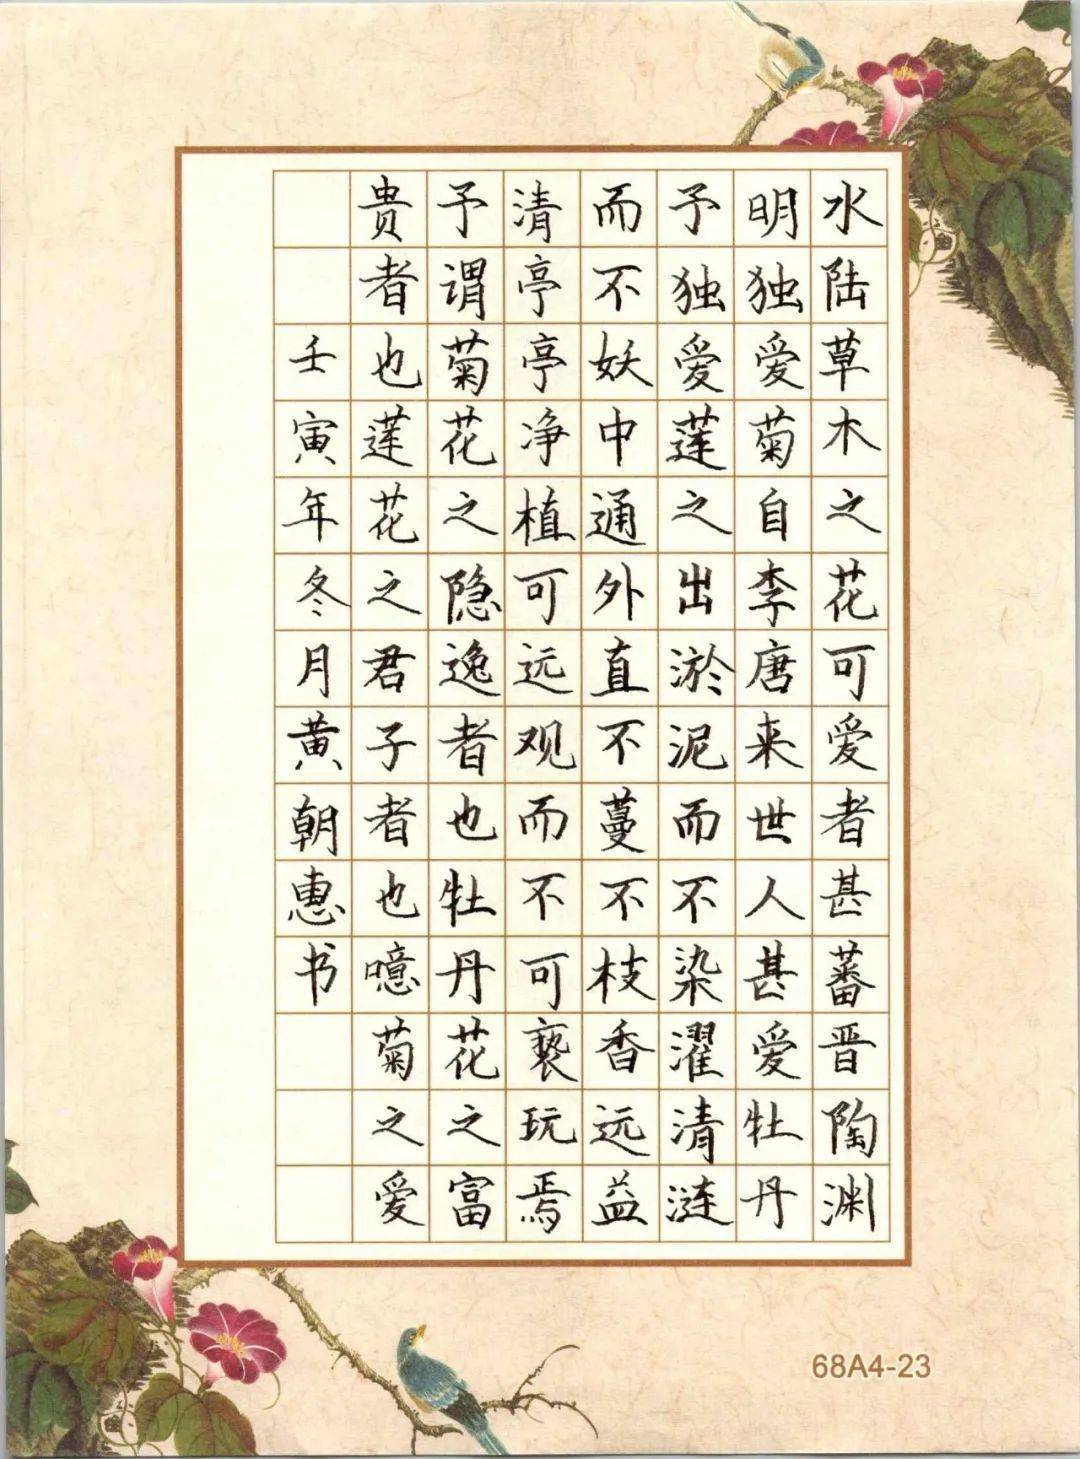 水陆草木之花可爱者甚蕃晋陶渊
明独爱菊自李唐来世人甚爱牡丹
予独爱莲之出淤泥而不染濯清涟
而不妖中通外直不蔓不枝香远益
清亭亭净植可远观而不可亵玩焉
予谓菊花之隐逸者也牡丹花之富
贵者也莲花之君子者也噫菊之爱
壬寅年冬月黄朝惠书
68A4-23